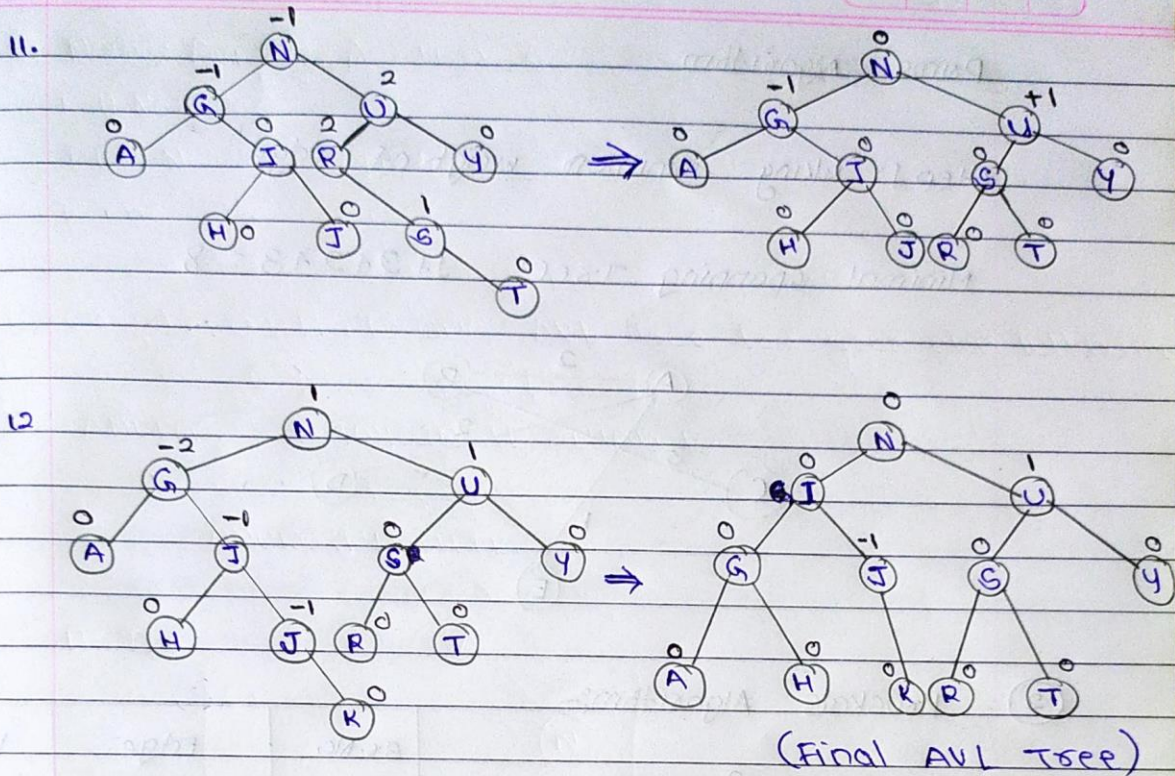 11.
-1
N
-1
G
2
U
0
A
0
I
2
R
0
Y
H 0
0
J
1
S
0
T
⇒
0
N
-1
G
+1
U
0
A
0
I
0
S
0
Y
0
H
0
J
R 0
0
T
12
1
N
-2
G
1
U
0
A
-1
J
0
S
0
Y
0
H
-1
J
R 0
0
T
K 0
⇒
0
N
0
I
1
U
0
G
-1
J
0
S
0
Y
0
A
0
H
0
K
R 0
0
T
(Final AVL Tree)